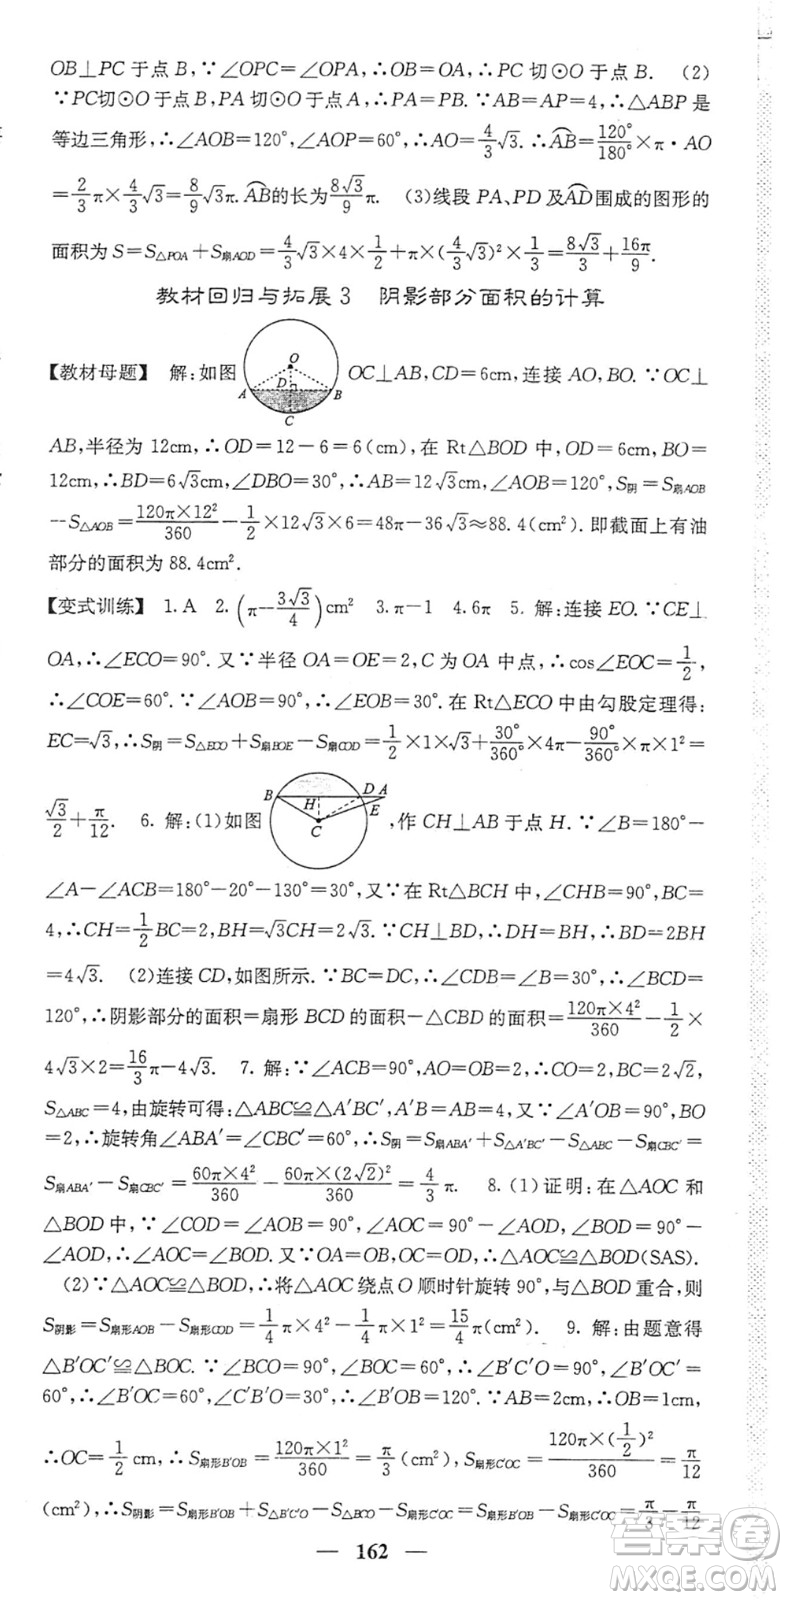 OB⊥PC于点B,∵∠OPC=∠OPA,∴OB=OA,∴PC切⊙O于点B. (2)
∵PC切⊙O于点B,PA切⊙O于点A,∴PA=PB.∵AB=AP=4,∴△ABP是
等边三角形,∴∠AOB=120°,∠AOP=60°,∴AO=4/3√3.∴AB⌒=120°/180°×π·AO
=2/3π×4/3√3=8/9√3π.AB⌒的长为8√3/9π. (3)线段PA、PD及AD⌒围成的图形的
面积为S=S△POA+S扇AOD=4/3√3×4×1/2+π×(4/3√3)²×1/3=8√3/3+16π/9.
教材回归与拓展3 阴影部分面积的计算
【教材母题】 解:如图 O A D B C OC⊥AB,CD=6cm,连接AO,BO.∵OC⊥
AB,半径为12cm,∴OD=12-6=6(cm),在Rt△BOD中,OD=6cm,BO=
12cm,∴BD=6√3cm,∠DBO=30°,∴AB=12√3cm,∠AOB=120°,S阴=S扇AOB
-S△AOB=120π×12²/360-1/2×12√3×6=48π-36√3≈88.4(cm²).即截面上有油
部分的面积为88.4cm².
【变式训练】 1.A 2.(π-3√3/4)cm² 3.π-1 4.6π 5.解:连接EO.∵CE⊥
OA,∴∠ECO=90°.又∵半径OA=OE=2,C为OA中点,∴cos∠EOC=1/2,
∴∠COE=60°.∵∠AOB=90°,∴∠EOB=30°.在Rt△ECO中由勾股定理得:
EC=√3,∴S阴=S△ECO+S扇BOE-S扇COD=1/2×1×√3+30°/360°×4π-90°/360°×π×1²=
√3/2+π/12. 6.解:(1)如图 B H D A C E ,作CH⊥AB于点H.∵∠B=180°-
∠A-∠ACB=180°-20°-130°=30°,又∵在Rt△BCH中,∠CHB=90°,BC=
4,∴CH=1/2BC=2,BH=√3CH=2√3.∵CH⊥BD,∴DH=BH,∴BD=2BH
=4√3. (2)连接CD,如图所示.∵BC=DC,∴∠CDB=∠B=30°,∴∠BCD=
120°,∴阴影部分的面积=扇形BCD的面积-△CBD的面积=120π×4²/360-1/2×
4√3×2=16/3π-4√3. 7.解:∵∠ACB=90°,AO=OB=2,∴CO=2,BC=2√2,
S△ABC=4,由旋转可得:△ABC≌△A′BC′,A′B=AB=4,又∵∠A′OB=90°,BO
=2,∴旋转角∠ABA′=∠CBC′=60°,∴S阴=S扇ABA′+S△A′BC′-S△ABC-S扇CBC′=
S扇ABA′-S扇CBC′=60π×4²/360-60π×(2√2)²/360=4/3π. 8.(1)证明:在△AOC和
△BOD中,∵∠COD=∠AOB=90°,∠AOC=90°-∠AOD,∠BOD=90°-
∠AOD,∴∠AOC=∠BOD.又∵OA=OB,OC=OD,∴△AOC≌△BOD(SAS).
(2)∵△AOC≌△BOD,∴将△AOC绕点O顺时针旋转90°,与△BOD重合,则
S阴影=S扇形AOB-S扇形COD=1/4π×4²-1/4π×1²=15/4π(cm²). 9.解:由题意得
△B′OC′≌△BOC.∵∠BCO=90°,∴∠B′C′O=90°,∵∠BOC=∠B′OC′=
60°,∴∠B′OC=60°,∠C′B′O=30°,∴∠B′OB=120°.∵AB=2cm,∴OB=1cm,
∴OC=1/2cm,∴S扇形B′OB=120π×1²/360=π/3(cm²),S扇形C′OC=120π×(1/2)²/360=π/12
(cm²),∴S阴影=S扇形B′OB+S△B′C′O-S△BCO-S扇形C′OC=S扇形B′OB-S扇形C′OC=π/3-π/12
— 162 —
答案卷
MXEQE.COM